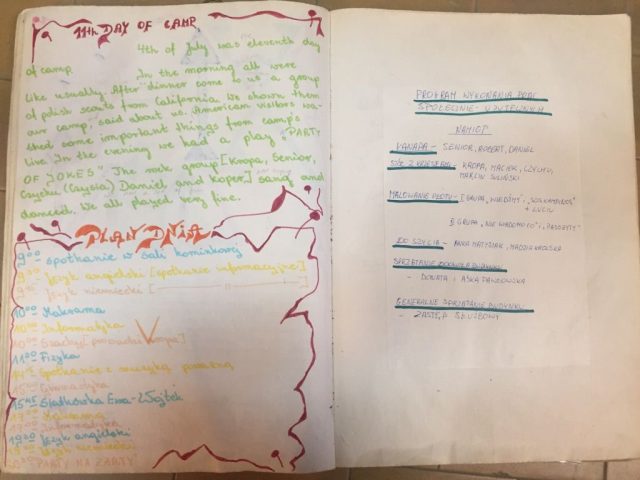 11th DAY OF CAMP
4th of July was eleventh day
of camp. In the morning all were
like usually. After dinner come to us a group
of polish scouts from California. We shown them
our camp, said about us. American visitors wa-
ched some important things from camp's
live. In the evening we had a play "PARTY
OF JOKES". The rock group [Kropa, Senior,
Czytki (Gysia) Daniel and Koper] sang and
danced. We all played very fine.
PLAN DNIA
9 00 spotkanie w sali kominkowej
9 język angielski [spotkanie informacyjne]
język niemiecki [
10 00 Makrama
10 Informatyka
Szachy [porachki Kropa]
11 00 Fizyka
Spotkanie z muzyką poważną
Gimnastyka
15 45 Siatkówka Ewa-Wojtek
Makrama
Informatyka
19 00 język angielski
język niemiecki
"PARTY NA ŻARTY"
PROGRAM WYKONANIA PRAC
SPOŁECZNIE - UŻYTECZNYCH
NAMIOT
KANAPA - SENIOR, ROBERT, DANIEL
KROPA, MACIEK, CZYLTU,
MARCIN
MALOWANIE PŁOTU - I GRUPA "WIEDŹMY" i "SOS KAMPINOS"
+ LUCIU
II GRUPA "NIE WIADOMO CO" i "PASOŻYTY"
DO SZYCIA - ANKA MATYSIAK, MADZIA
SPRZĄTANIE
- DONATA i AŚKA PAWŁOWSKA
GENERALNE SPRZĄTANIE BUDYNKU
- ZASTĘP SŁUŻBOWY